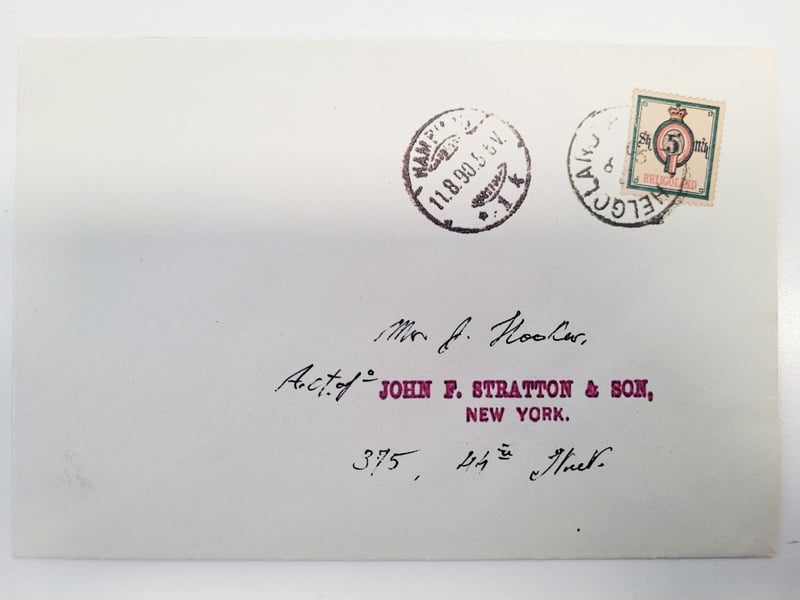 HAMBURG
11.8.90.5-6V.
* 1 k
HELGOLAND
Sh 5 mk
HELIGOLAND
Mr J. Hooker,
JOHN F. STRATTON & SON,
NEW YORK.
375, 44th Street.